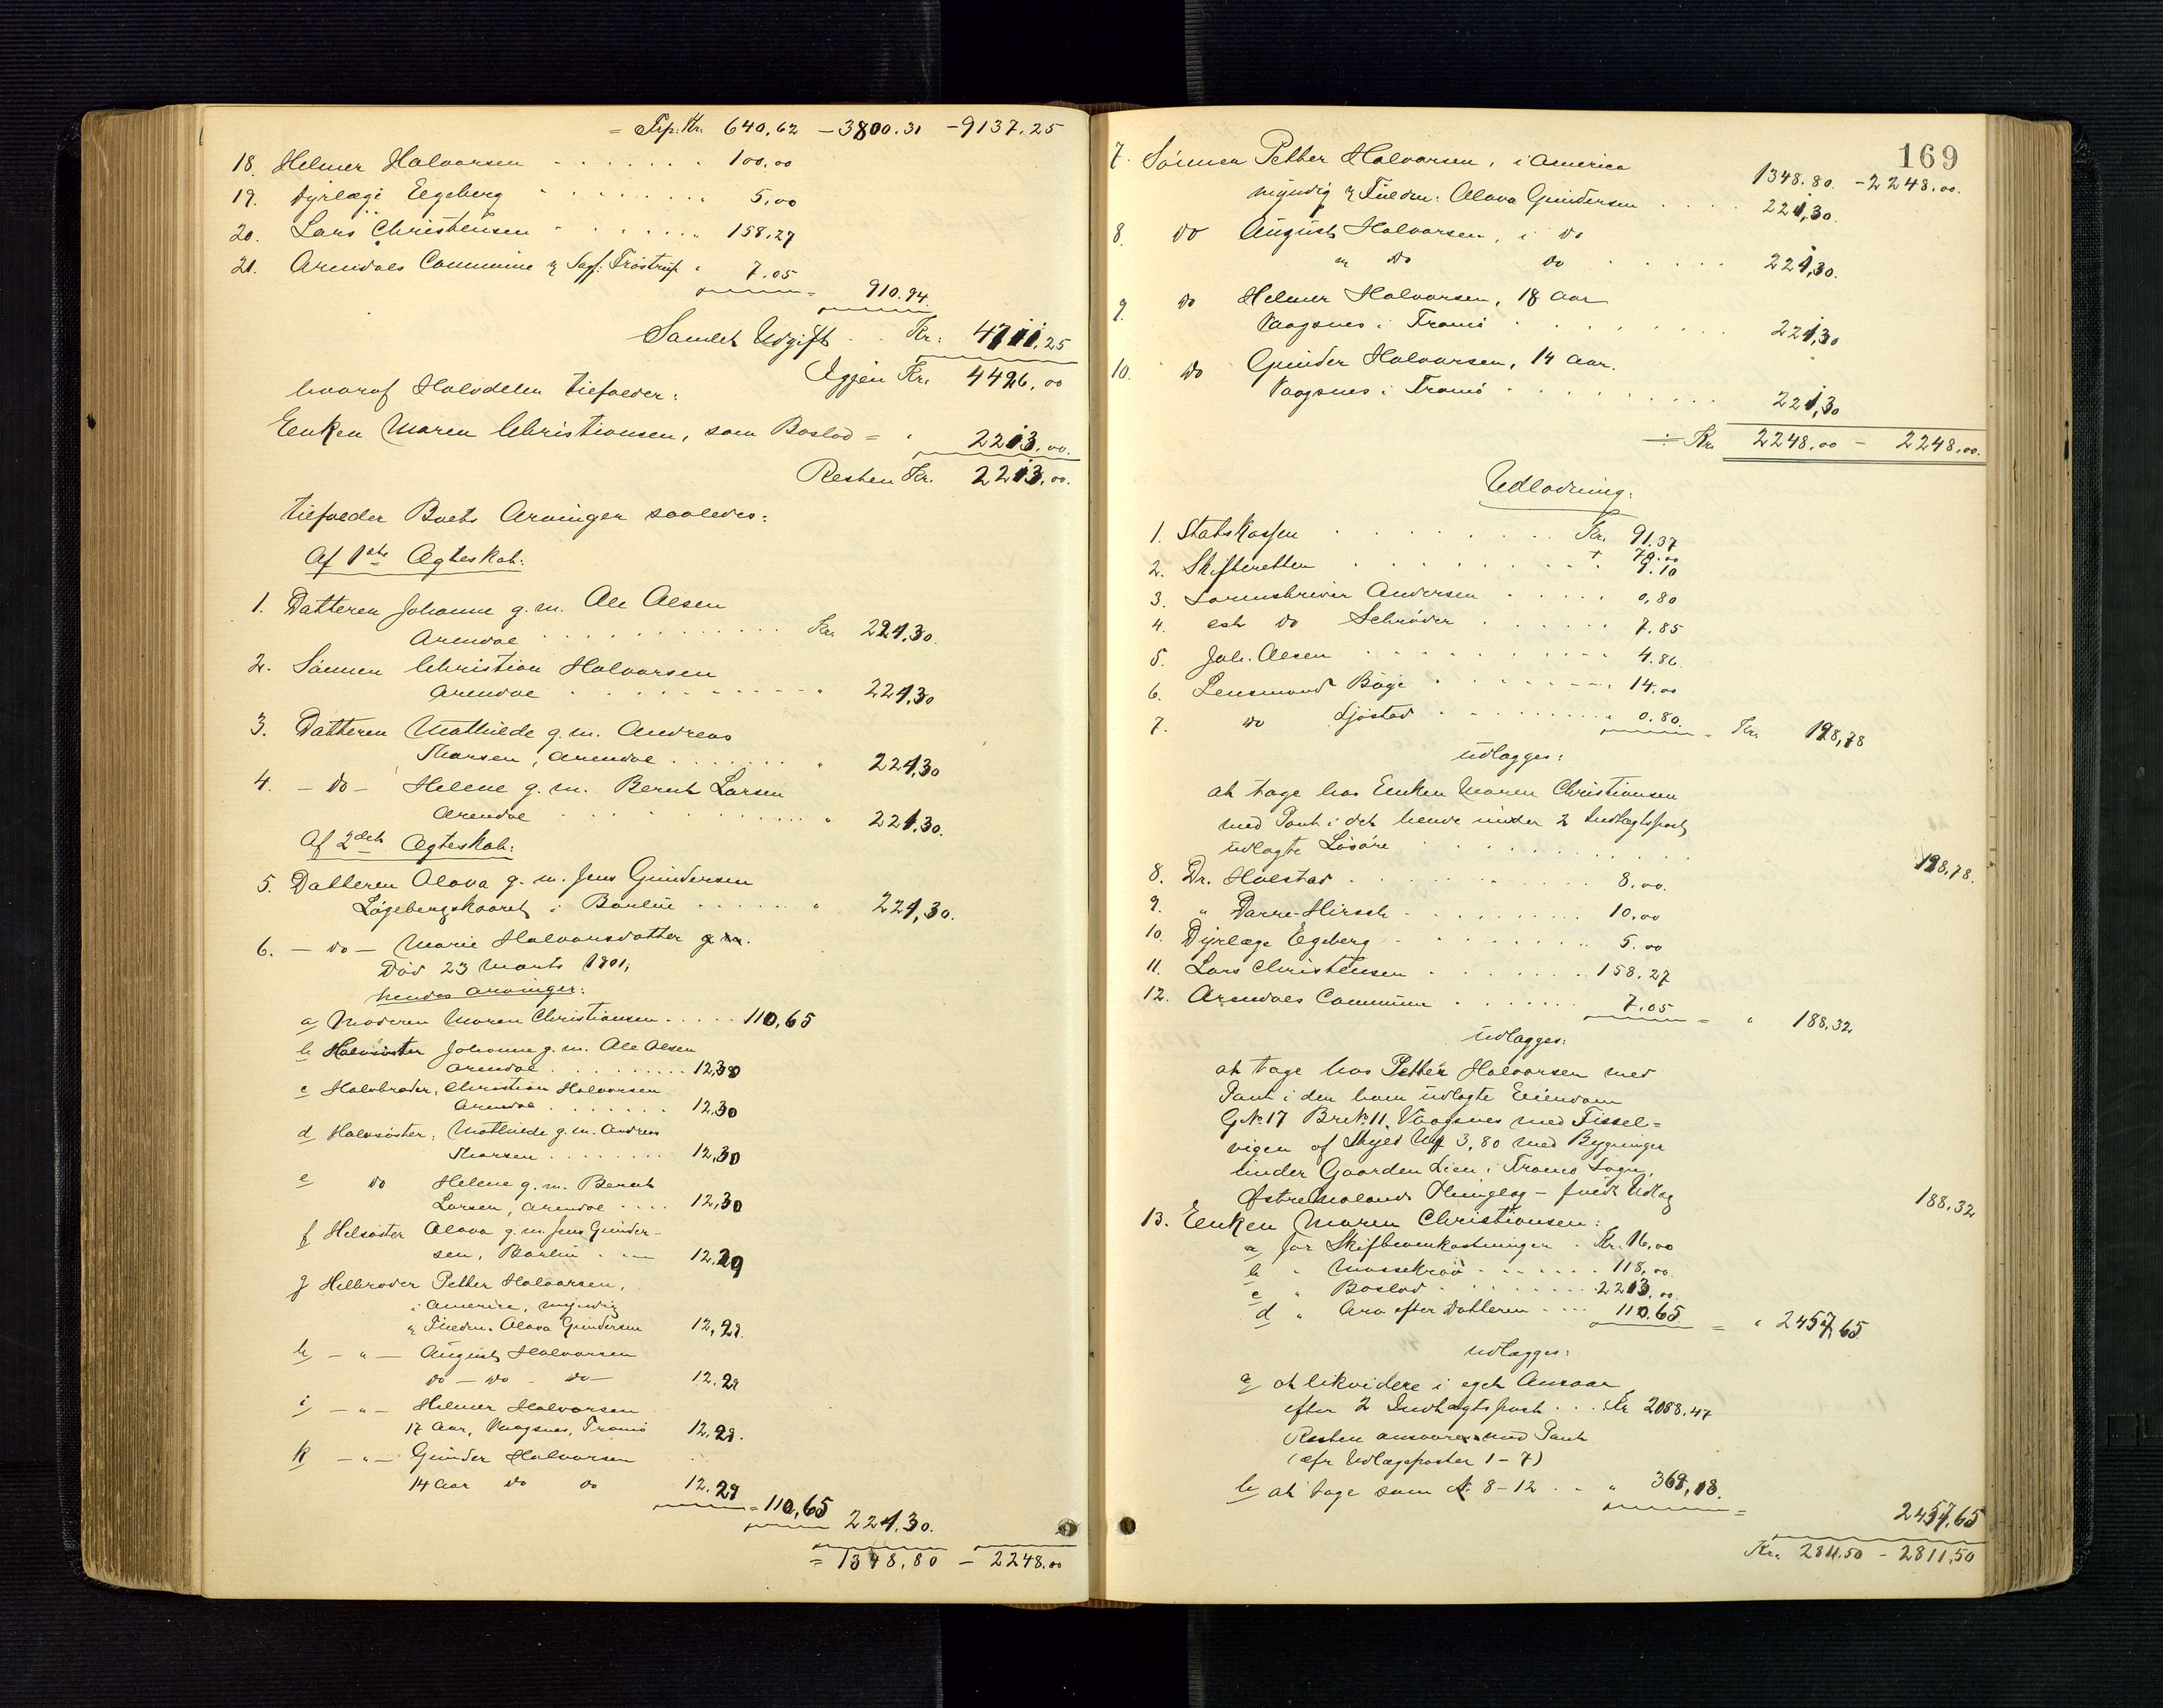 = Trp. Kr. 640,62 - 3800.31 - 9137.25
18. Helmer Halvorsen 100,00
19. Dyrlæge Egeberg 5,00
20. Lars Christensen 158,27
21. Arendals Commune v/ Sagf. Trøstrup 7.05
910.94.
Samlet Udgift Kr. 4711,25
Igjen Kr. 4426,00
hvoraf Halvdelen tilfalder:
Enken Maren Christiansen, som Boslod = 2213.00.
Resten Kr. 2213,00.
tilfalder Boets Arvinger saaledes:
Af 1ste Ægteskab:
1. Datteren Johanne g. m. Ole Olsen
Arendal Kr. 221,30.
2. Sønnen Christian Halvorsen
Arendal 221,30
3. Datteren Mathilde g. m. Andreas
Tharsen, Arendal 221,30
4. - do - Helene g. m. Bernt Larsen
Arendal 221,30.
Af 2det Ægteskab:
5. Datteren Olava g. m. Jens Gundersen
Løgebergskaaret i Barbu 221,30.
6. - do - Marie Halvorsdatter g. m.
Død 23 Marts 1901,
hendes Arvinger:
a/ Moderen Maren Christiansen 110,65
b Halvsøster Johanne g. m. Ole Olsen
Arendal 12,30
c Halvbroder, Christian Halvorsen
Arendal 12,30
d Halvsøster, Mathilde g. m. Andreas
Tharsen 12,30
e do Helene g. m. Bernt
Larsen, Arendal 12,30
f Helsøster Olava g. m. Jens Gunder-
sen, Barbu 12,29
g Helbroder Petter Halvorsen,
i America, myndig
v/ Fuldm. Olava Gundersen 12,29
h/ - " - August Halvorsen
do - do - do - 12.29
i/ - " - Helmer Halvorsen
17 Aar, Vaagsnes, Tromø 12.29.
k - " - Gunder Halvorsen
14 Aar do do 12.29
= 110,65 221,30.
= 1348,80 - 2248,00
169
1348.80. - 2248,00.
7. Sønnen Petter Halvorsen, i America
myndig v/ Fuldm: Olava Gundersen 221,30.
8. do August Halvorsen, i do
v/ do do 221,30.
9. do Helmer Halvorsen, 18 Aar
Vaagsnes i Tromø 221,30
10. do Gunder Halvorsen, 14 Aar.
Vaagsnes i Tromø 221,30
Kr. 2248,00 - 2248,00.
Udlodning:
1. Statskassen Kr. 91.37
+ 70.00
2. Skifteretten 9.10
3. Sorenskriver Andersen 0,80
4. cst do Schrøder 7.85
5. Joh. Olsen 4.86.
6. Lensmand Bøje 14.00
7. do Sjøstad 0.80. = Kr. 198,78
udlægges:
at tage hos Enken Maren Christiansen
med Pant i det hende under 2 Indtægtspost
udlagte Løsøre 198,78.
8. Dr. Holstad 8,00.
9. " Darre-Hirsch 10.00
10. Dyrlæge Egeberg 5.00
11. Lars Christensen 158,27
12. Arendals Commune 7.05 = " 188,32
udlægges:
at tage hos Petter Halvorsen med
Pant i den ham udlagte Eiendom
G. No 17 Br. No 11. Vaagsnes med Tissel=
vigen af Skyld Mk 3,80 med Bygninger
under Gaarden Lien i Tromø Sogn,
Østre Molands Thinglag - fuldt Udlæg 188,32
13. Enken Maren Christiansen:
a/ for Skifteomkostninger Kr. 16,00
b " Massekrav 118,00.
c " Boslod 2213,00.
d " Arv efter Datteren 110.65 = " 2457,65
udlægges:
a/ at likvidere i eget Ansvar
efter 2 Indtægtspost Kr 2088,47
Resten ansvares med Pant
(cfr Udlægsposter 1 - 7)
b at tage som No 8 - 12 " 369,18. =
2457,65
Kr. 2811.50 - 2811,50